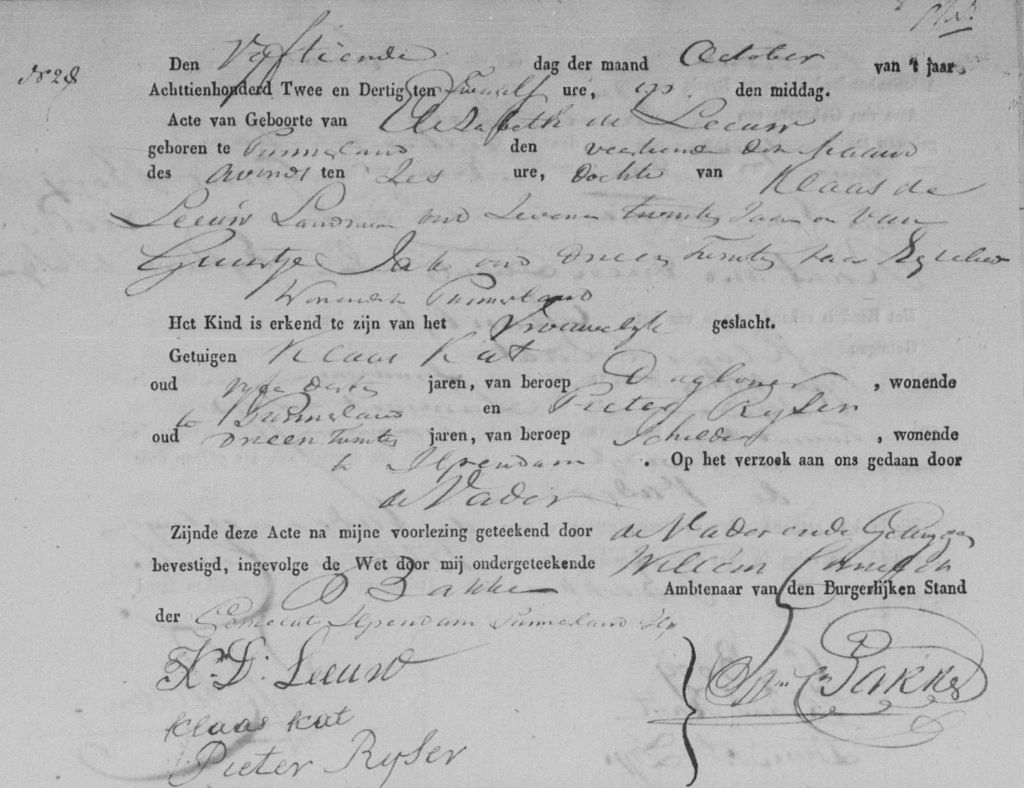 No 28
Den Vyftiende dag der maand October van 't jaar
Achttienhonderd Twee en Dertig ten Twaalf ure, op den middag.
Acte van Geboorte van Elisabeth de Leeuw
geboren te Purmerland den veertiende der maand
des Avonds ten Zes ure, Dochter van Klaas de
Leeuw Landman oud Zeven en twintig Jaar en van
Guurtje Jak oud Drie en Twintig Jaar Egtelied
Wonende te Purmerland
Het Kind is erkend te zijn van het Vrouwelyk geslacht.
Getuigen Klaas Kat
oud vyf en dertig jaren, van beroep Dagloner, wonende
te Purmerland en Pieter Ryser
oud Drie en Twintig jaren, van beroep Schilder, wonende
te Ilpendam. Op het verzoek aan ons gedaan door
de Vader
Zijnde deze Acte na mijne voorlezing geteekend door de Vader en de Getuigen
bevestigd, ingevolge de Wet door mij ondergeteekende Willem
Bakker Ambtenaar van den Burgerlijken Stand
der Gemeente Ilpendam Purmerland
K. D. Leeuw
Klaas Kat
Pieter Ryser
Bakker